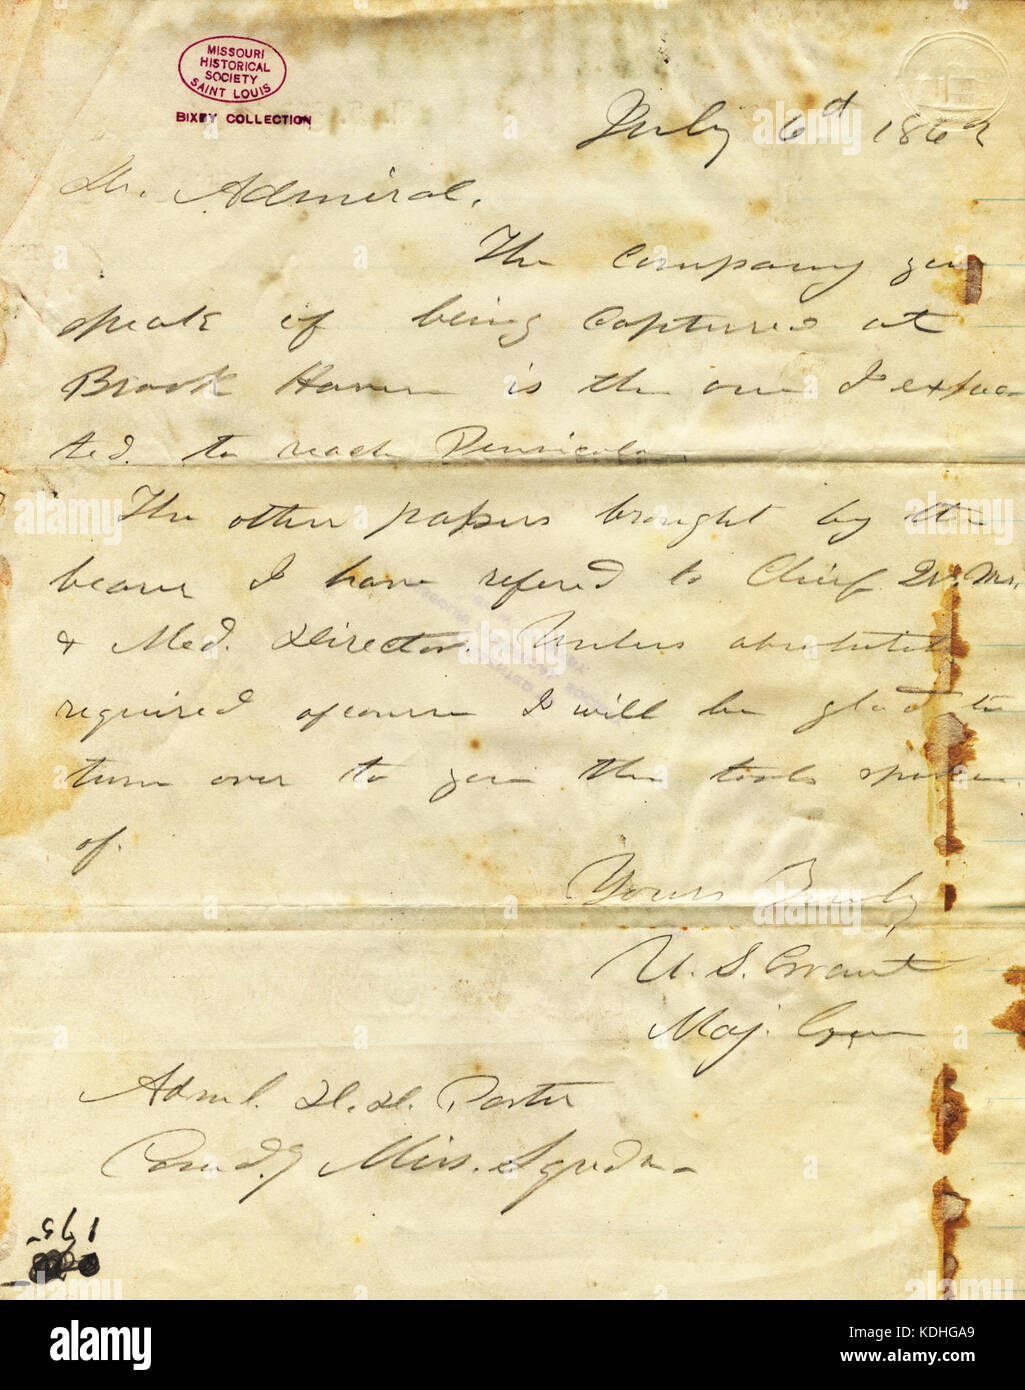 MISSOURI
HISTORICAL
SOCIETY
SAINT LOUIS
BIXBY COLLECTION
July 6th 1863
Dr. Admiral,
The Company you
speak of being Captured at
Brook Haven is the one I expec
ted to reach Pensicola.
The other papers brought by the
bearer I have refered to Chief Qr. Mr.
& Med. Director. Unless absolutely
required ofcourse I will be glad to
turn over to you the tools spoken
of.
Yours Truly,
U. S. Grant
Maj. Gen
Adml. D. D. Porter
Comd.g Miss. Sqdn
175
alamy
Image ID: KDHGA9
www.alamy.com